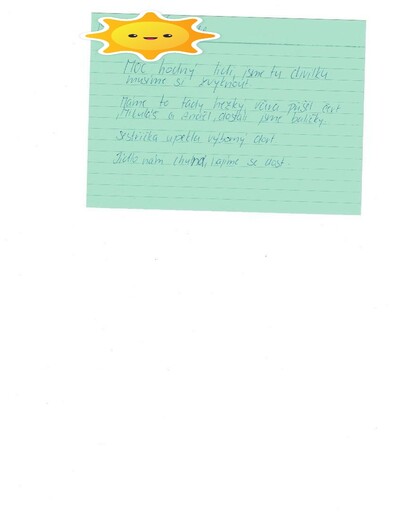 Moc hodný lidi, jsme tu chvilku
musíme si zvyknout!
Máme to tady hezký, včera přišel čert
Mikuláš a anděl, dostali jsme balíčky.
Sestřička upekla výborný dort.
Jídlo nám chutná, najíme se dost.